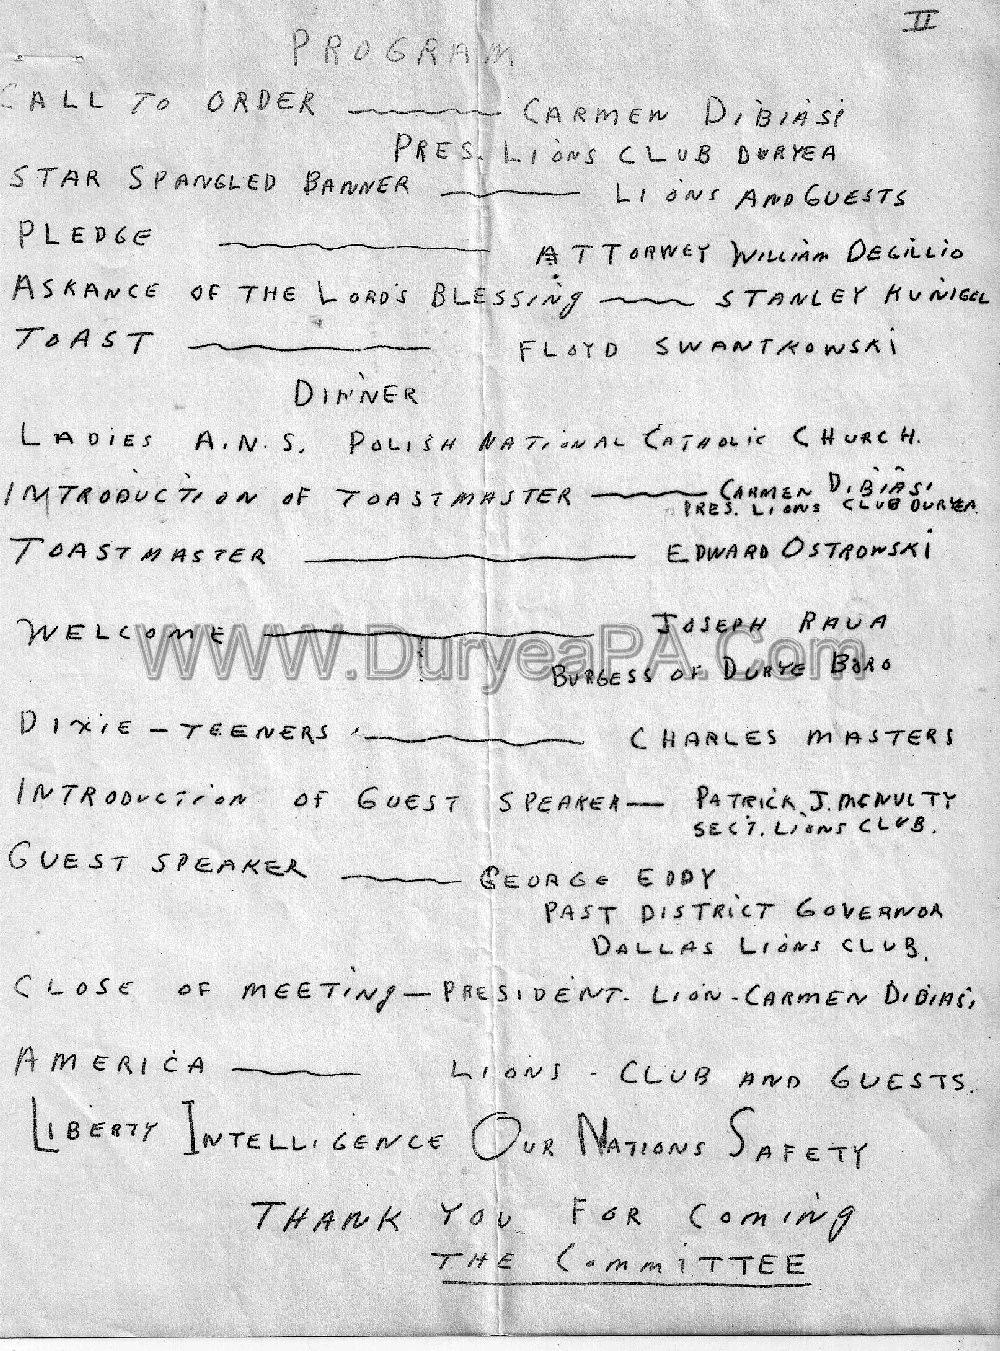 II
PROGRAM
CALL TO ORDER CARMEN DIBIASI
PRES. LIONS CLUB DURYEA
STAR SPANGLED BANNER LIONS AND GUESTS
PLEDGE ATTORNEY WILLIAM DEGILLIO
ASKANCE OF THE LORD'S BLESSING STANLEY KUNIGEL
TOAST FLOYD SWANTKOWSKI
DINNER
LADIES A.N.S. POLISH NATIONAL CATHOLIC CHURCH.
INTRODUCTION OF TOASTMASTER CARMEN DIBIASI
PRES. LIONS CLUB DURYEA
TOASTMASTER EDWARD OSTROWSKI
WELCOME JOSEPH RAVA
BURGESS OF DURYE BORO
WWW.DuryeaPA.Com
DIXIE-TEENERS CHARLES MASTERS
INTRODUCTION OF GUEST SPEAKER — PATRICK J. MCNULTY
SECT. LIONS CLUB.
GUEST SPEAKER GEORGE EDDY
PAST DISTRICT GOVERNOR
DALLAS LIONS CLUB.
CLOSE OF MEETING — PRESIDENT. LION-CARMEN DIBIASI
AMERICA LIONS - CLUB AND GUESTS.
LIBERTY INTELLIGENCE OUR NATIONS SAFETY
THANK YOU FOR COMING
THE COMMITTEE